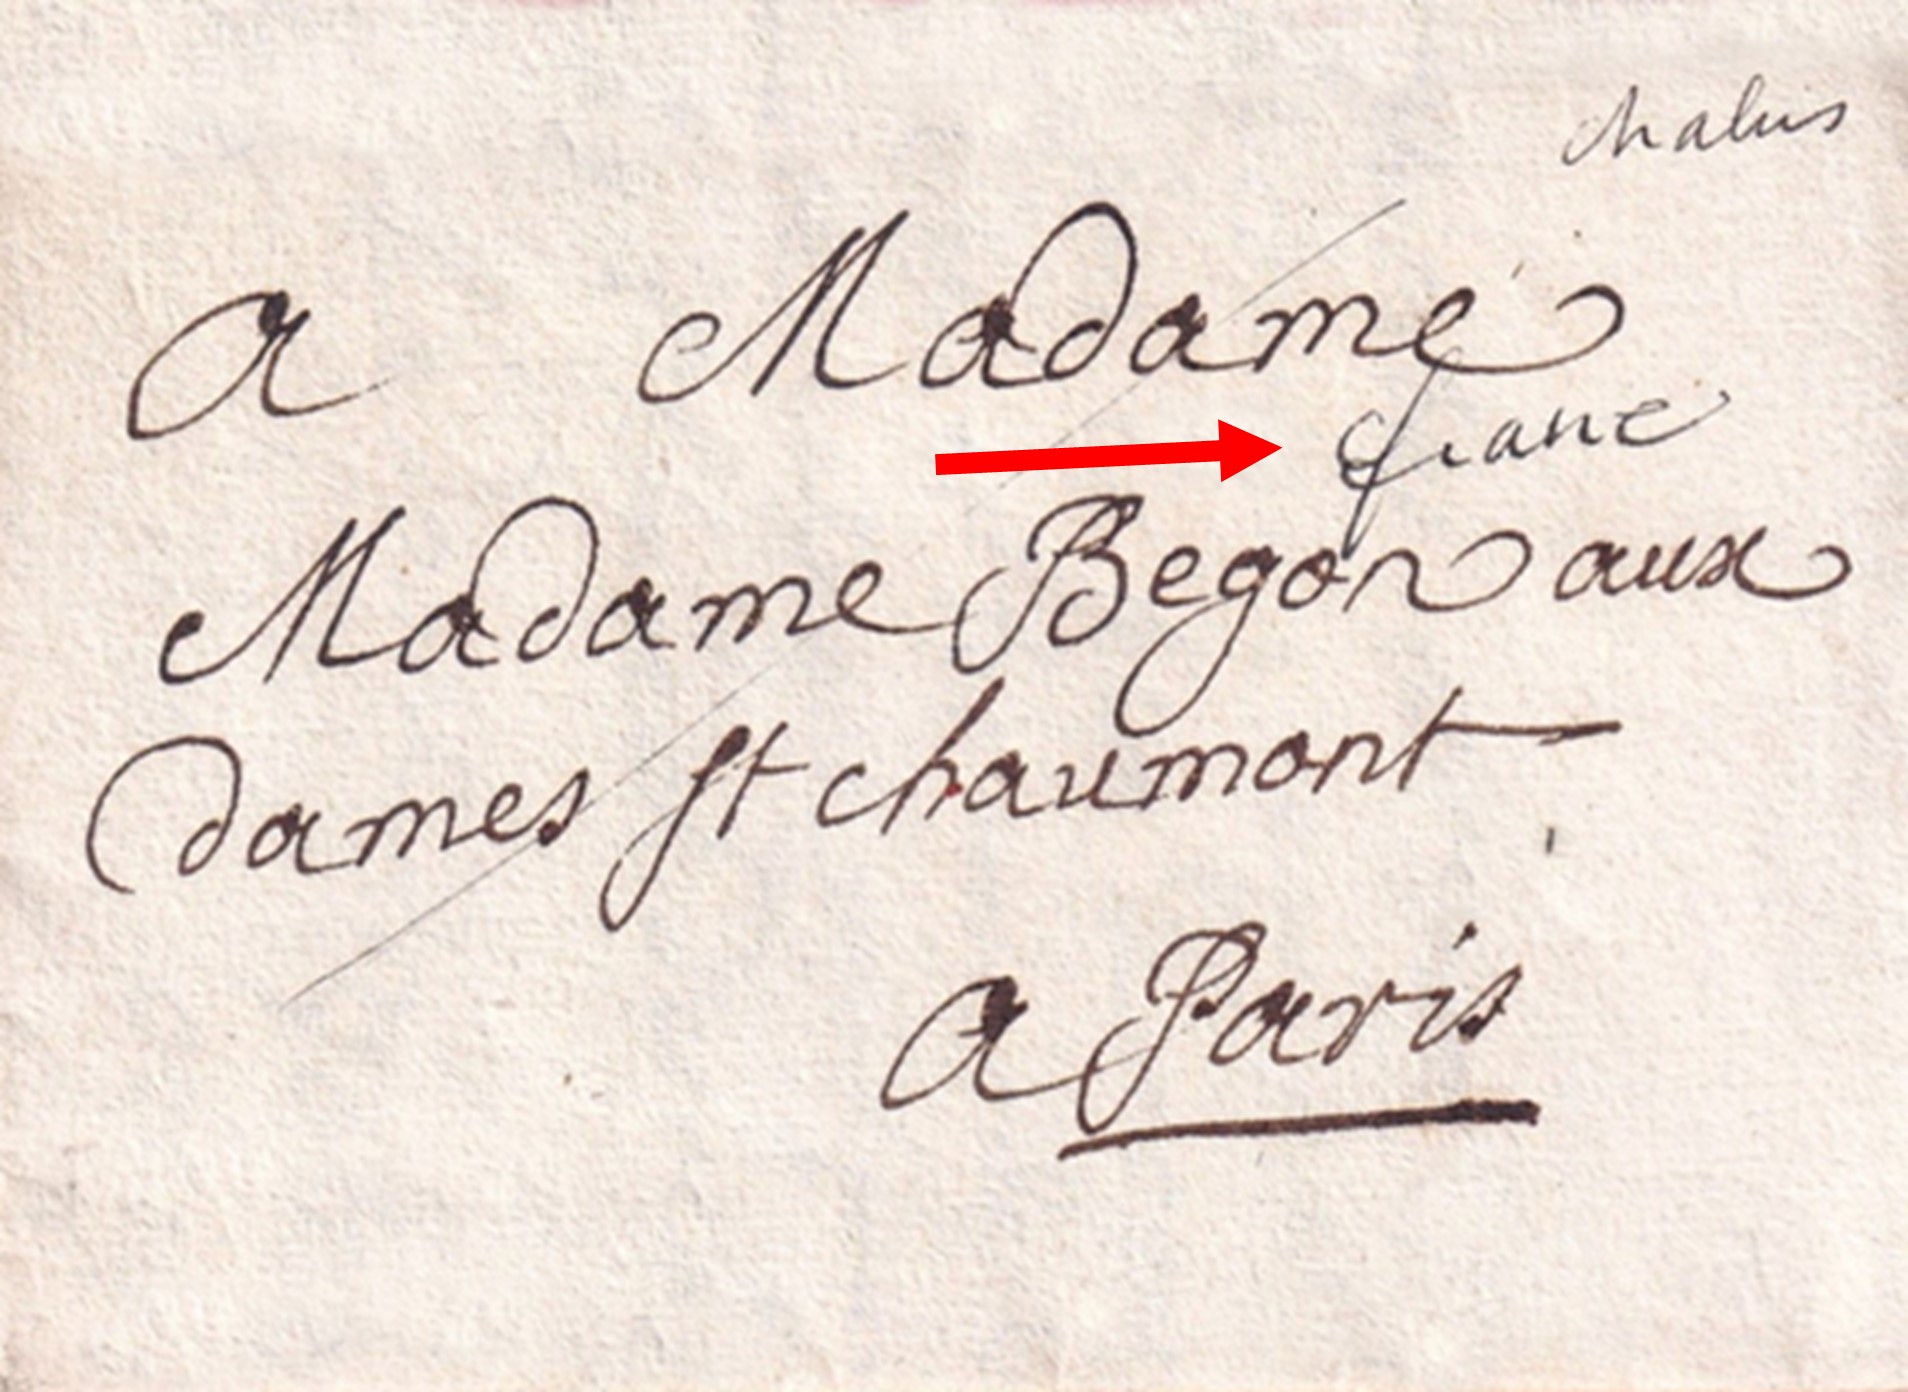 chalus
a Madame
franc
Madame Begon aux
dames St chaumont
a Paris